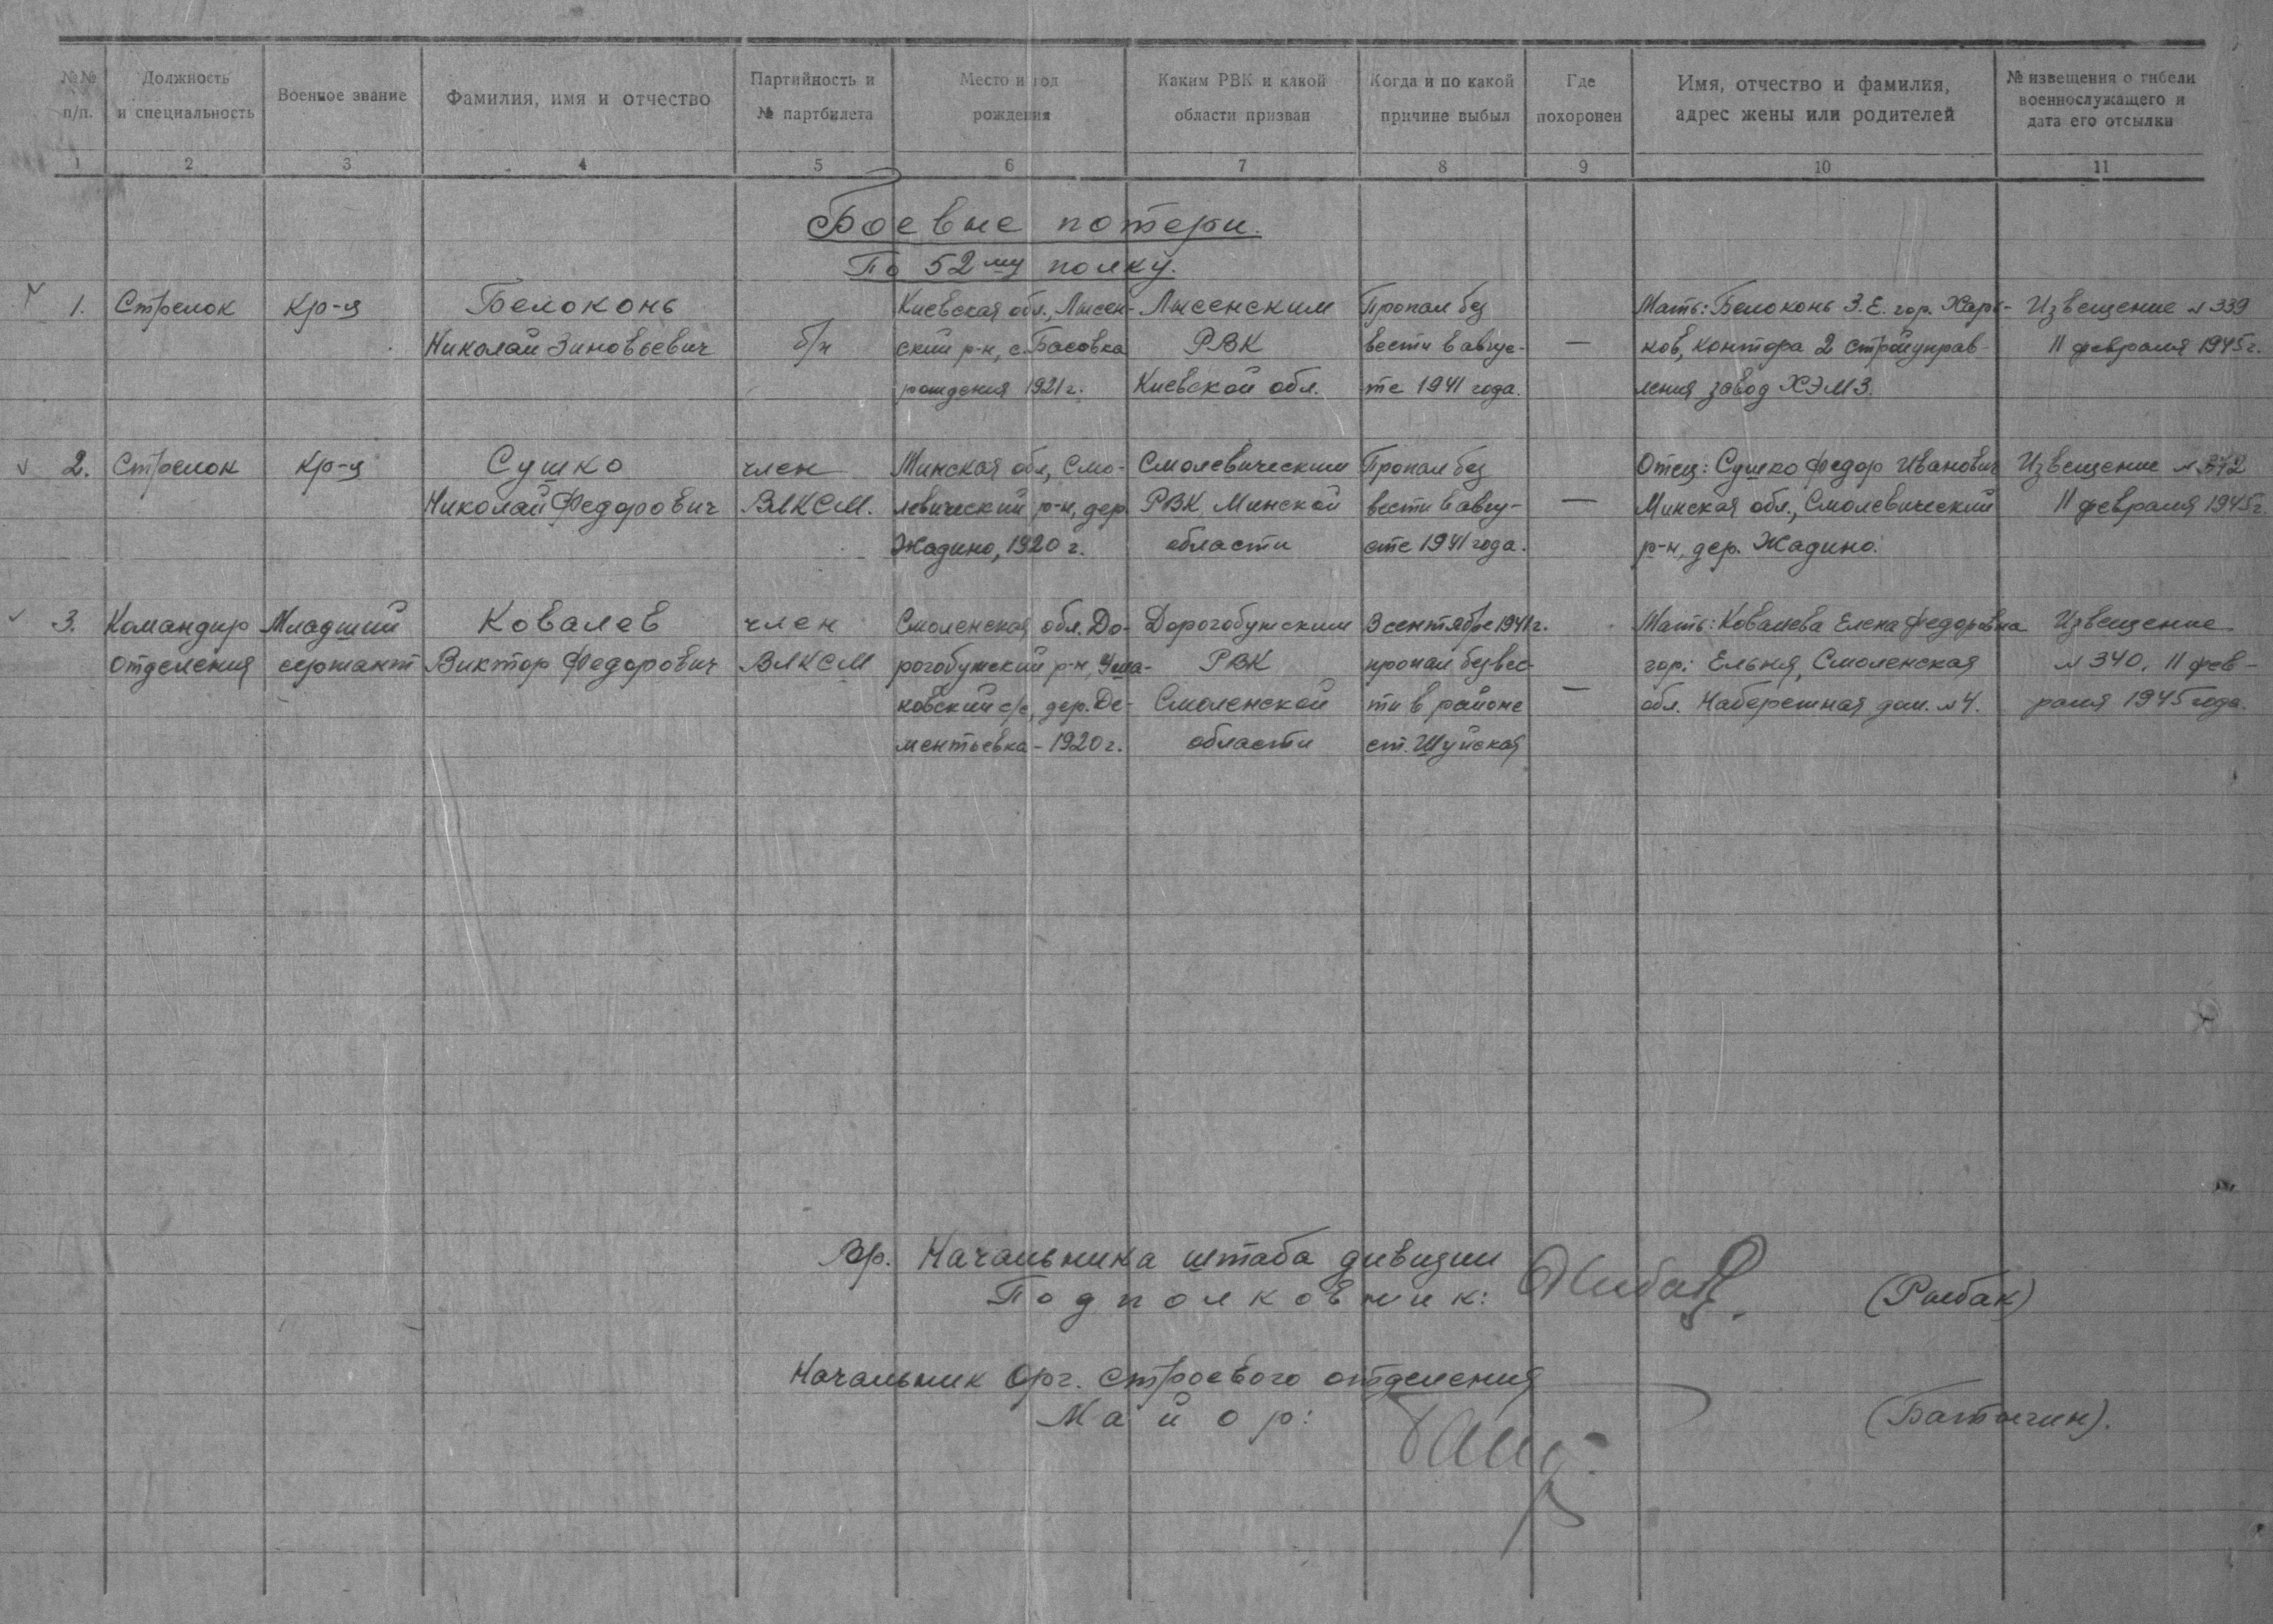 №№ п/п.
Должность и специальность
Военное звание
Фамилия, имя и отчество
Партийность и № партбилета
Место и год рождения
Каким РВК и какой области призван
Когда и по какой причине выбыл
Где похоронен
Имя, отчество и фамилия, адрес жены или родителей
№ извещения о гибели военнослужащего и дата его отсылки
1 2 3 4 5 6 7 8 9 10 11
Боевые потери.
По 52му полку.
1.
Стрелок
Кр-ц
Белоконь
Николай Зиновьевич
б/п
Киевская обл., Лысен-
ский р-н, с. Басовка
рождения 1921 г.
Лысенским
РВК
Киевской обл.
Пропал без
вести в авгус-
те 1941 года.
—
Мать: Белоконь З.Е. гор. Харь-
ков, контора 2 стройуправ-
ления завод ХЭМЗ.
Извещение № 339
11 февраля 1945 г.
2.
Стрелок
Кр-ц
Сушко
Николай Федорович
член
ВЛКСМ.
Минская обл., Смо-
левический р-н, дер.
Жадино, 1920 г.
Смолевическим
РВК Минской
области
Пропал без
вести в авгу-
сте 1941 года.
—
Отец: Сушко Федор Иванович
Минская обл., Смолевический
р-н, дер. Жадино.
Извещение №
11 февраля 1945 г.
3.
Командир
отделения
Младший
сержант
Ковалев
Виктор Федорович
член
ВЛКСМ
Смоленская обл. До-
рогобужский р-н, Уша-
ковский с/с, дер. Де-
ментьевка - 1920 г.
Дорогобужским
РВК
Смоленской
области
В сентябре 1941 г.
пропал без вес-
ти в районе
ст. Шуйская
—
Мать: Ковалева Елена Федоровна
гор. Ельня, Смоленская
обл. Набережная дом. № 4.
Извещение
№ 340. 11 фев-
раля 1945 года.
Вр. Начальника штаба дивизии
Подполковник:
(Рыбак)
Начальник Орг. строевого отделения
Майор:
(Батыгин).